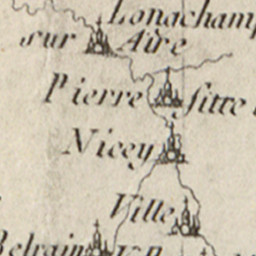 Lonachamp
sur Aire
Pierre fitte
Nicey
Ville
Belrain